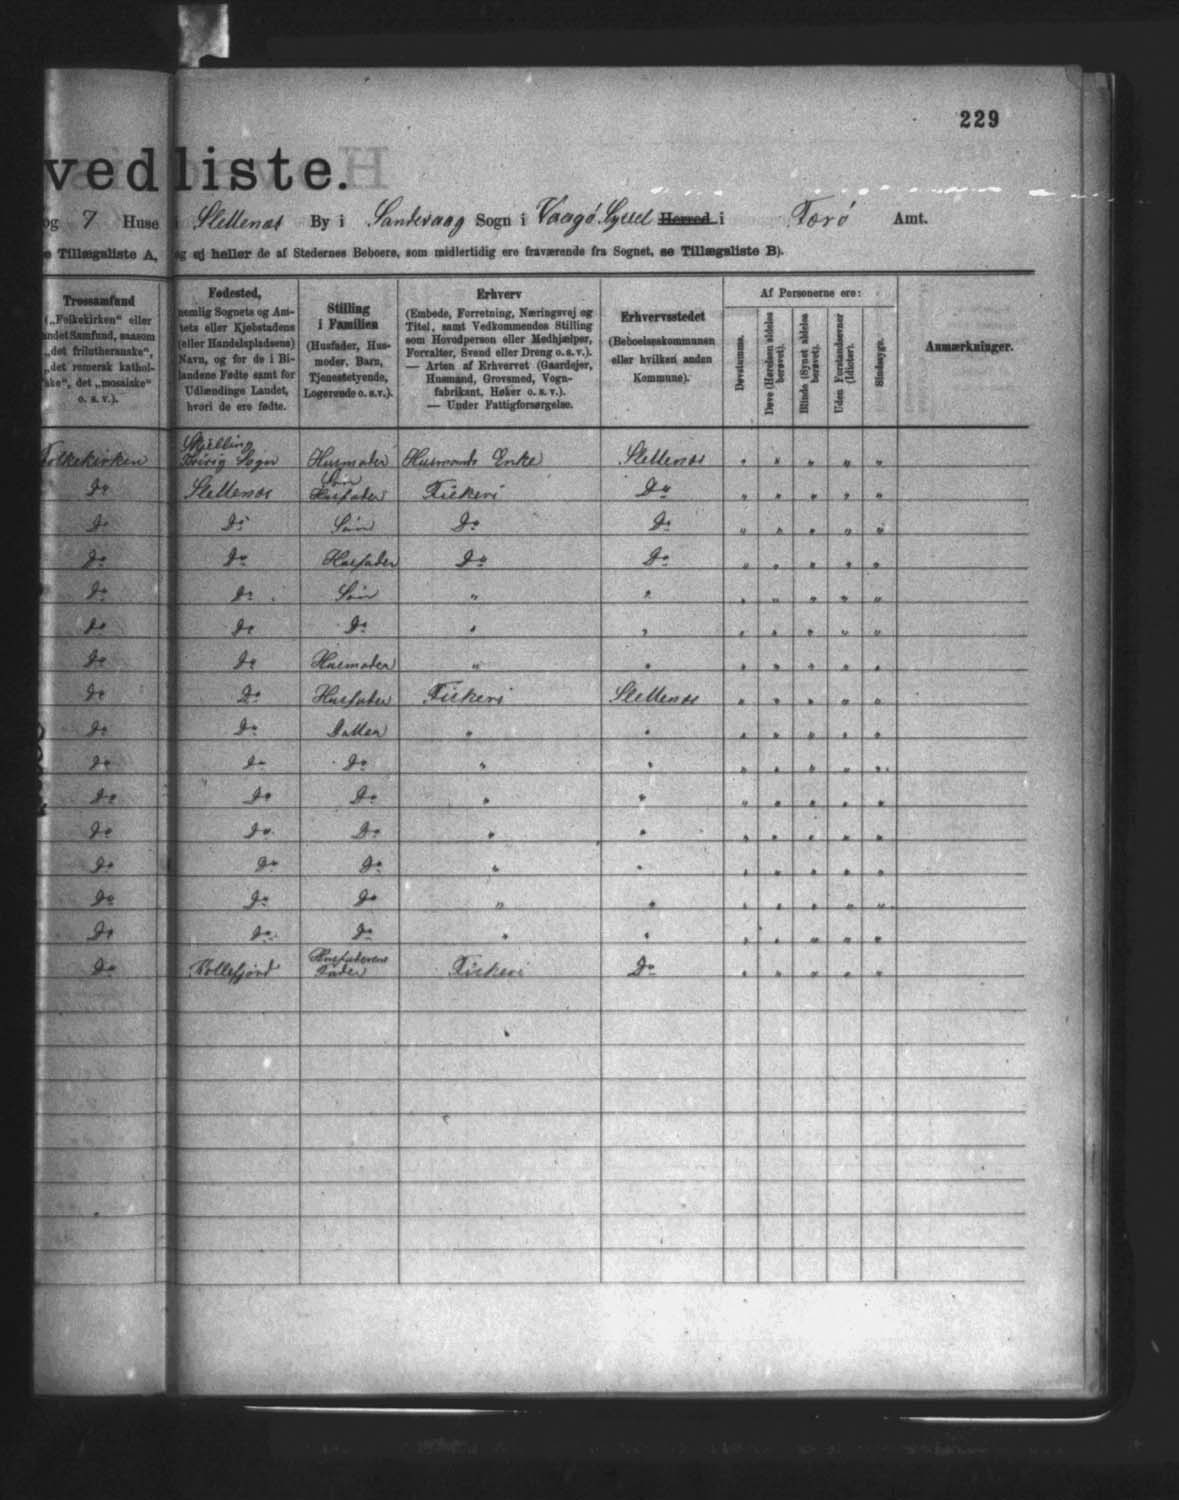 229
vedliste.
og 7 Huse i Slettenæs By i Sandevaag Sogn i Vaagø Syssel Herred i Færø Amt.
e Tillægsliste A, og ej heller de af Stedernes Beboere, som midlertidig ere fraværende fra Sognet, se Tillægsliste B).
Trossamfund
(„Folkekirken“ eller
andet Samfund, saasom
„det frilutheranske“,
„det romersk kathol-
ske“, det „mosaiske“
o. s. v.).
Fødested,
nemlig Sognets og Am-
tets eller Kjøbstadens
(eller Handelspladsens)
Navn, og for de i Bi-
landene Fødte samt for
Udlændinge Landet,
hvori de ere fødte.
Stilling
i Familien
(Husfader, Hus-
moder, Barn,
Tjenestetyende,
Logerende o. s. v.).
Erhverv
(Embede, Forretning, Næringsvej og
Titel, samt Vedkommendes Stilling
som Hovedperson eller Medhjælper,
Forvalter, Svend eller Dreng o. s. v.).
— Arten af Erhvervet (Gaardejer,
Husmand, Grovsmed, Vogn-
fabrikant, Høker o. s. v.).
— Under Fattigforsørgelse.
Erhvervsstedet
(Beboelseskommunen
eller hvilken anden
Kommune).
Af Personerne ere:
Døvstumme.
Døve (Hørelsen aldeles
berøvet).
Blinde (Synet aldeles
berøvet).
Uden Forstandsevner
(Idioter).
Sindssyge.
Anmærkninger.
Folkekirken Sogn Husmoder Husmands Enke Slettenæs " " " " "
Do Slettenæs Søn Husfader Fiskeri Do " " " " "
Do Do Søn Do Do " " " " "
Do Do Husfader Do Do " " " " "
Do Do Søn " " " " " " "
Do Do Do " " " " " " "
Do Do Husmoder " " " " " " "
Do Do Husfader Fiskeri Slettenæs " " " " "
Do Do Datter " " " " " " "
Do Do Do " " " " " " "
Do Do Do " " " " " " "
Do Do Do " " " " " " "
Do Do Do " " " " " " "
Do Do Do " " " " " " "
Do Do Do " " " " " " "
Do Husfaderens Fader Fiskeri Do " " " " "